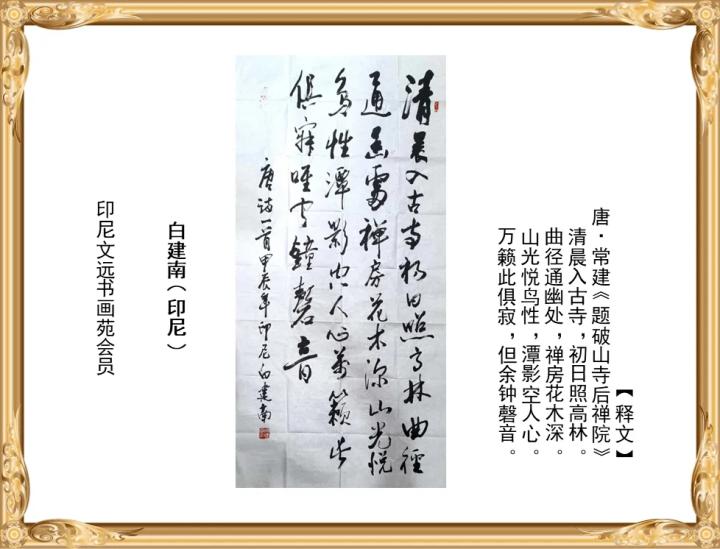 【释文】
唐·常建《题破山寺后禅院》
清晨入古寺，初日照高林。
曲径通幽处，禅房花木深。
山光悦鸟性，潭影空人心。
万籁此俱寂，但余钟磬音。
清晨入古寺初日照高林曲径
通幽處禅房花木深山光悦
鸟性潭影空人心万籁此
俱寂唯守鐘磬音
唐诗一首甲辰年印尼白建南
白建南（印尼）
印尼文远书画苑会员